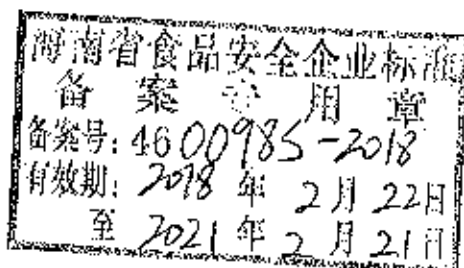 海南省食品安全企业标准
备案专用章
备案号：460098S-2018
有效期：2018年2月22日
至2021年2月21日